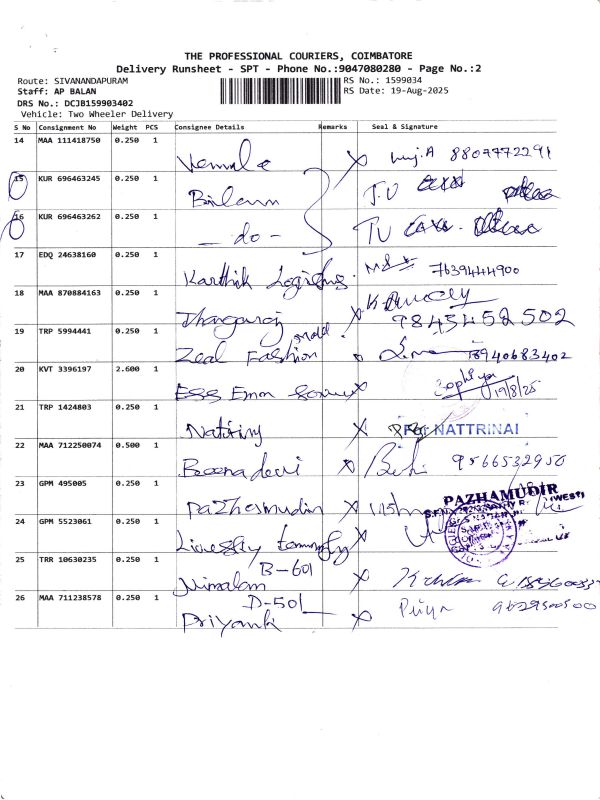 THE PROFESSIONAL COURIERS, COIMBATORE
Delivery Runsheet - SPT - Phone No.:9047080280 - Page No.:2
Route: SIVANANDAPURAM
RS No.: 1599034
Staff: AP BALAN
RS Date: 19-Aug-2025
DRS No.: DCJB159903402
Vehicle: Two Wheeler Delivery
S No Consignment No Weight PCS Consignee Details Remarks Seal & Signature
14 MAA 111418750 0.250 1
8807772291
15 KUR 696463245 0.250 1
16 KUR 696463262 0.250 1
- do -
17 EDQ 24638160 0.250 1
Karthik 7639444900
18 MAA 870884163 0.250 1
Thangaraj 9843458502
19 TRP 5994441 0.250 1
Zeal Fashion 8940683402
20 KVT 3396197 2.600 1
Ess Emm 19/8/25
21 TRP 1424803 0.250 1
For NATTRINAI
22 MAA 712250074 0.500 1
Beena devi 9566532950
23 GPM 495005 0.250 1
PAZHAMUDIR
(WEST)
24 GPM 5523061 0.250 1
25 TRR 10630235 0.250 1
B-601
Nirmalam
26 MAA 711238578 0.250 1
D-501
Priyank Priya 9629500500